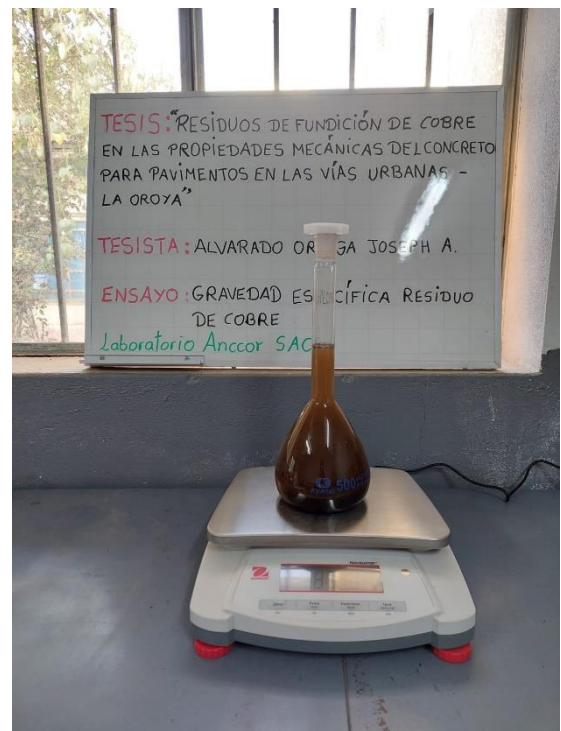 TESIS: "RESIDUOS DE FUNDICIÓN DE COBRE
EN LAS PROPIEDADES MECÁNICAS DEL CONCRETO
PARA PAVIMENTOS EN LAS VÍAS URBANAS -
LA OROYA"
TESISTA: ALVARADO JOSEPH A.
ENSAYO: GRAVEDAD ESPECÍFICA RESIDUO
DE COBRE
Laboratorio Anccor SAC
500